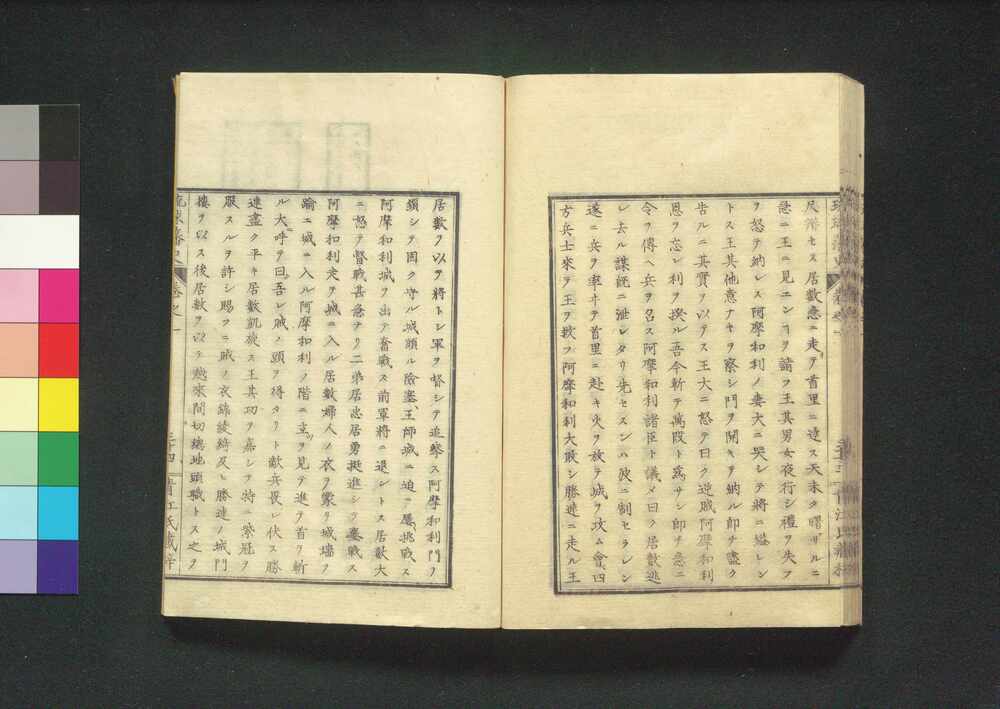 琉球藩史 卷之一
尺濟セス居數急ニ走テ首里ニ達ス天未タ曙ザルニ
急ニ王ニ見エンヿヲ請フ王其男女夜行シ禮ヲ失フ
ヲ怒テ納レス阿摩和利ノ妻大ニ哭シテ將ニ縊レン
トス王其他意ナキヲ察シ門ヲ開キヲ納ル卽チ盡ク
告ルニ其實ヲ以テス王大ニ怒テ曰ク逆賊阿摩和利
恩ヲ忘レ利ヲ挾ル吾今斬テ萬段ト爲サン卽チ急ニ
令ヲ傳ヘ兵ヲ召ス阿摩和利諸臣ト議メ曰ク居數逃
レ去ル謀既ニ泄レタリ先セスンハ彼ニ制セラレン
遂ニ兵ヲ率ヰテ首里ニ赴キ火ヲ放テ城ヲ攻ム會四
方兵士來ヲ王ヲ救フ阿摩和利大敗シ勝連ニ走ル王
居數ヲ以ヲ將トシ軍ヲ督シテ追擊ス阿摩和利門ヲ
鎖シテ固ク守ル城頗ル險塞王師城ニ迫テ屢挑戰ス
阿摩和利城ヲ出テ奮戰ス前軍將ニ退ントス居數大
ニ怒テ督戰甚急ナリ二弟居忠居勇挺進シテ鏖戰ス
阿摩和利走ヲ城ニ入ル居數婦人ノ衣ヲ蒙リ城墻ヲ
踰ニ城ニ入ル阿摩和利ノ階ニ立ヲ見テ進テ首ヲ斬
ル大呼ヲ曰吾レ賊ノ頭ヲ得タリト敵兵畏レ伏ス勝
連盡ク平キ居數凱旋ス王其功ヲ嘉シヲ特ニ紫冠ヲ
服スルヲ許シ賜フニ賊ノ衣錦綾綺及ヒ勝連ノ城門
樓ヲ以ス後居數ヲ以テ越來間切總地頭職トス之ヲ
琉球藩史 卷之一 三十四 青江氏藏梓